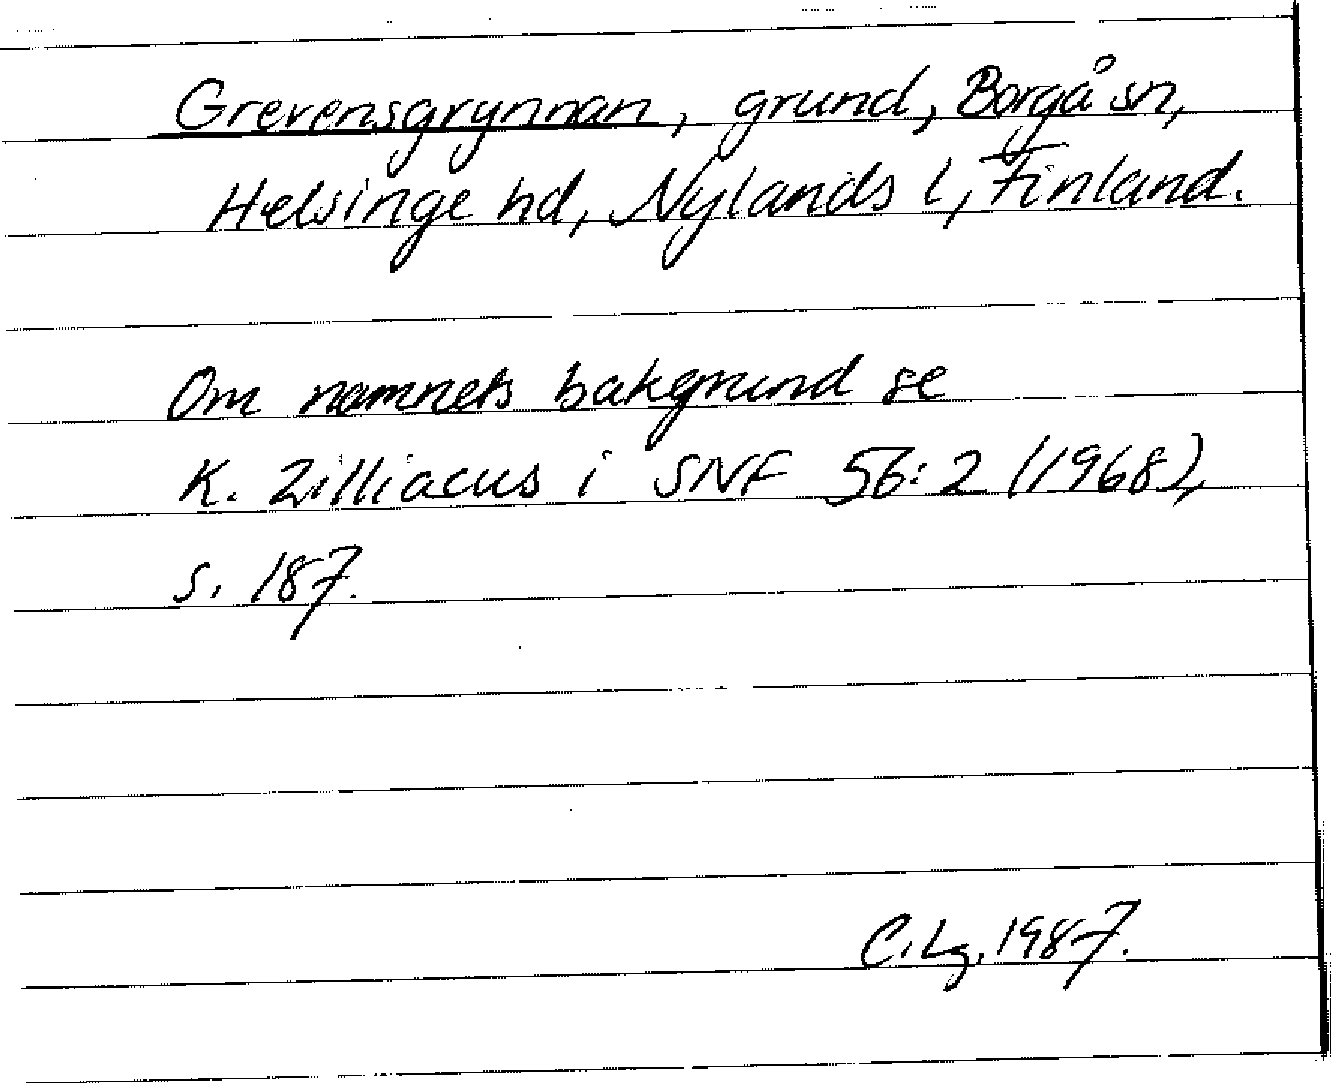 Grevensgrynnan, grund, Borgå sn,
Helsinge hd, Nylands l, Finland.
Om namnets bakgrund se
K. Zilliacus i SNF 56:2 (1968),
s. 187.
C.Lg. 1987.